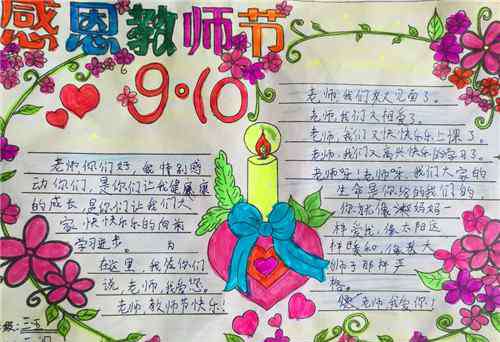 感恩教师节
9·10
老师你们好,我特别感
动你们,是你们让我健康
的成长,是你们让我们大
家快快乐乐的向前
学习进步。为
在这里,我欲你们
说老师,我爱您,
老师教师节快乐!
老师,我们又见面了。
老师,我们又相爱了。
老师,我们又快快乐乐上课了。
老师,我们又高兴快乐的学习了。
老师呀!老师呀,我们大家的
生命是你给的我们的
你就像妈妈一
样爱我,像太阳这
样暖和,像教大
师子那样严
格。
老师,我爱你!
级:三五